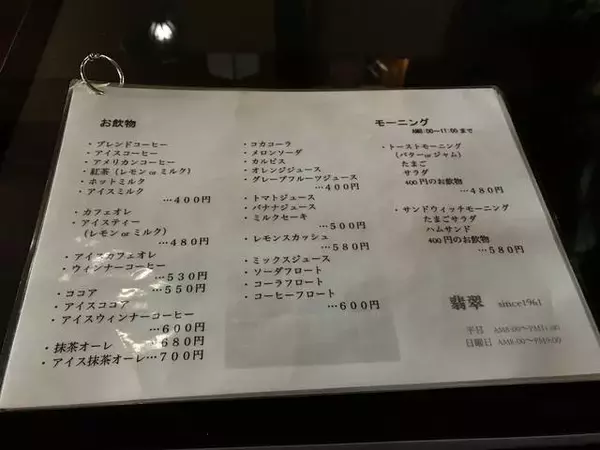 お飲物
・ブレンドコーヒー
・アイスコーヒー
・アメリカンコーヒー
・紅茶（レモン or ミルク）
・ホットミルク
・アイスミルク
…400円
・カフェオレ
・アイスティー
（レモン or ミルク）
…480円
・アイスカフェオレ
・ウィンナーコーヒー
…530円
・ココア …550円
・アイスココア
・アイスウィンナーコーヒー
…600円
・抹茶オーレ …680円
・アイス抹茶オーレ…700円
・コカコーラ
・メロンソーダ
・カルピス
・オレンジジュース
・グレープフルーツジュース
…400円
・トマトジュース
・バナナジュース
・ミルクセーキ
…500円
・レモンスカッシュ
…580円
・ミックスジュース
・ソーダフロート
・コーラフロート
・コーヒーフロート
…600円
モーニング
AM8:00〜11:00 まで
・トーストモーニング
（バター or ジャム）
たまご
サラダ
400円のお飲物
…480円
・サンドウィッチモーニング
たまごサラダ
ハムサンド
400円のお飲物
…580円
翡翠 since1961
平日 AM8:00〜
日曜日 AM8:00〜PM9:00